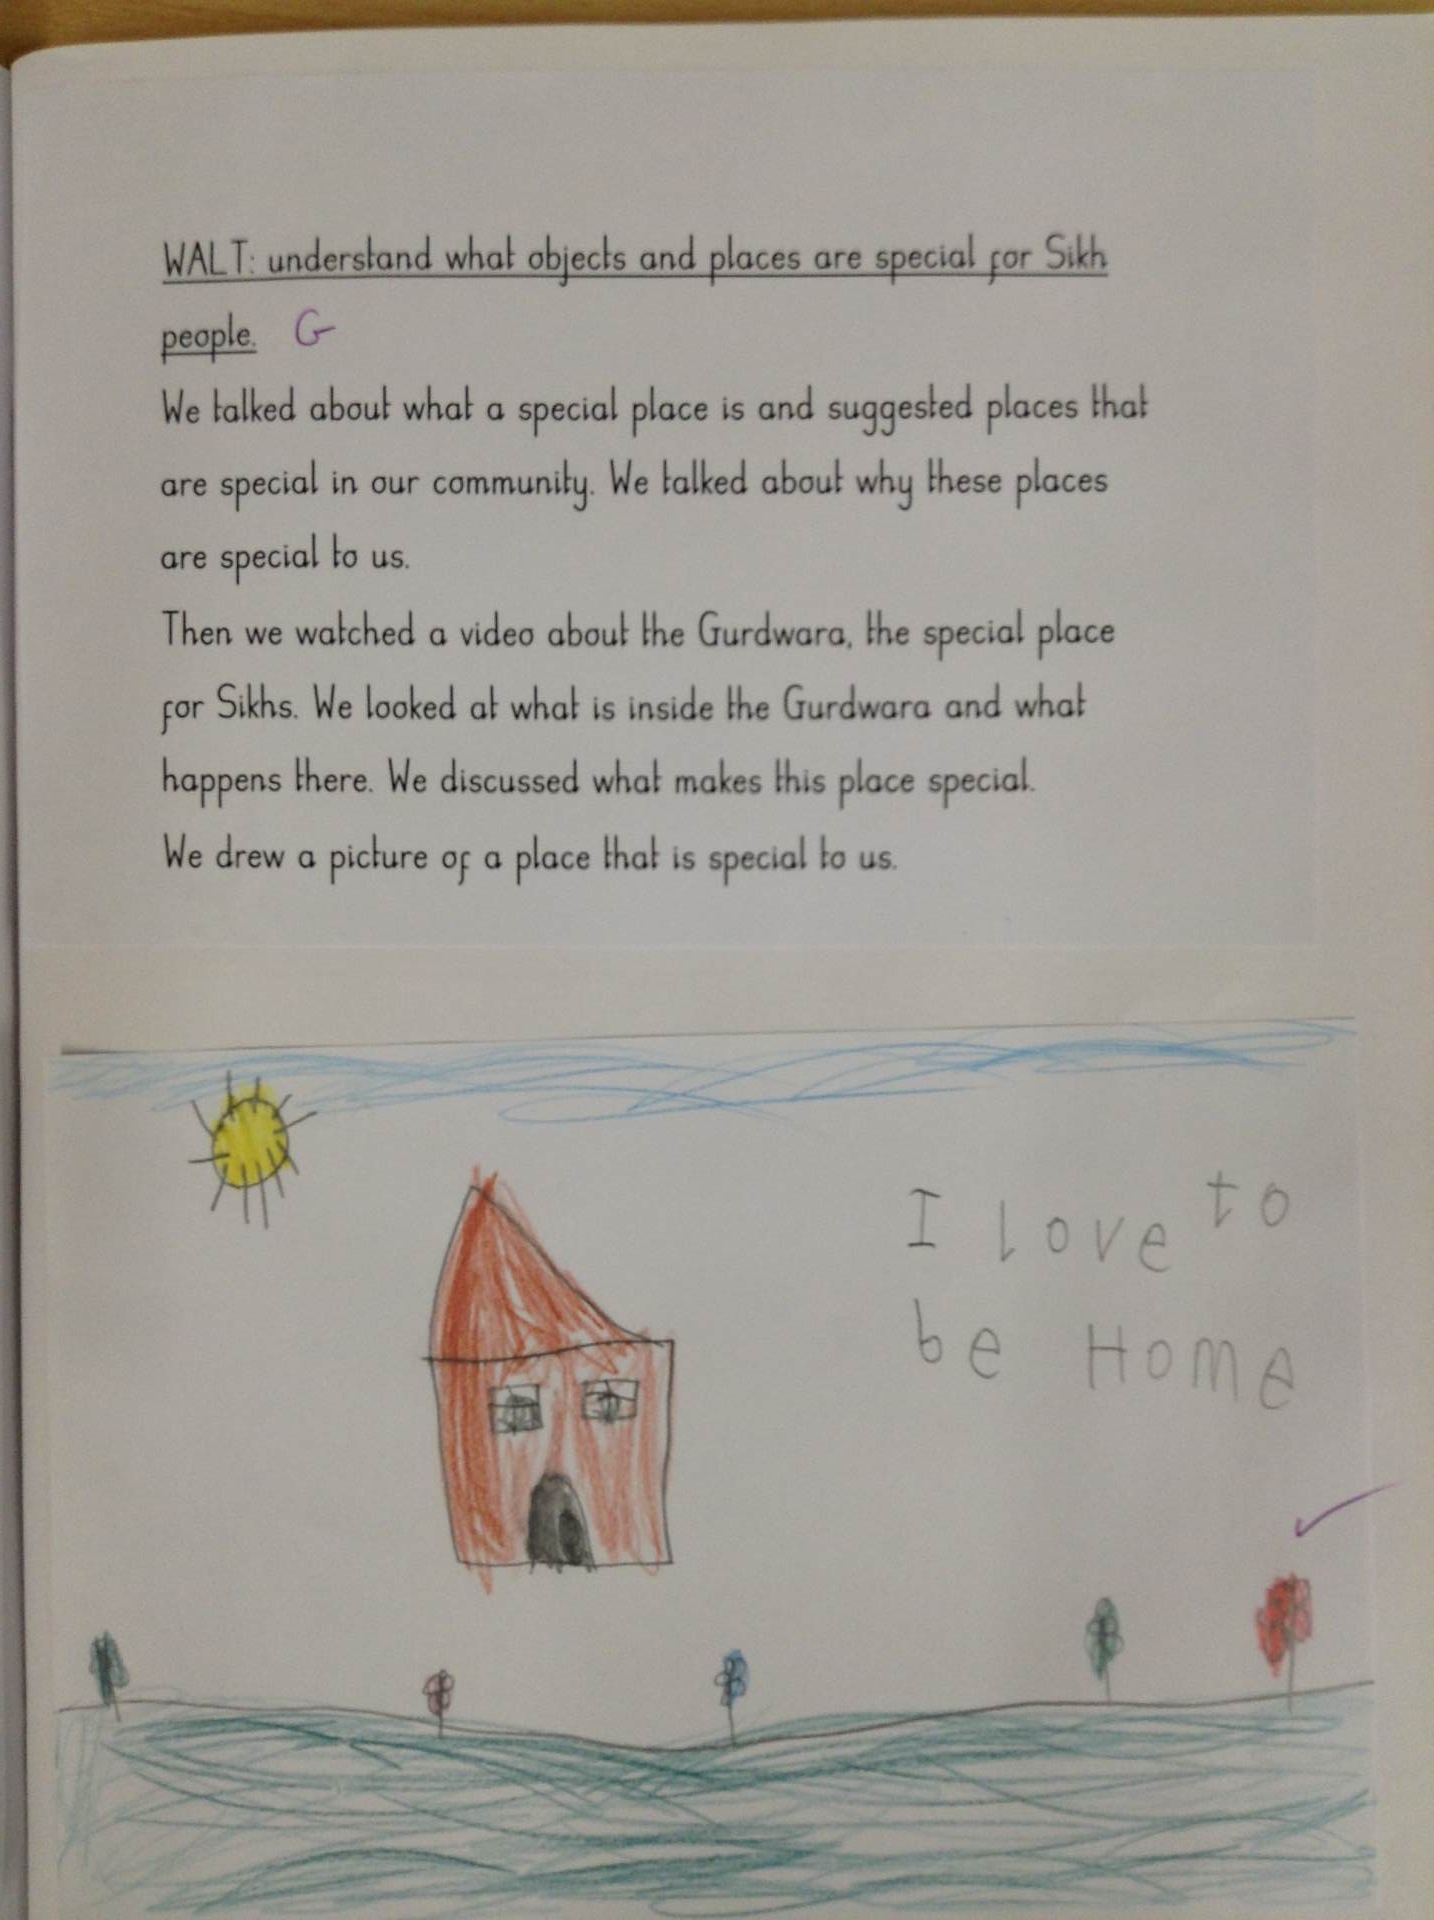 WALT: understand what objects and places are special for Sikh
people. G
We talked about what a special place is and suggested places that
are special in our community. We talked about why these places
are special to us.
Then we watched a video about the Gurdwara, the special place
for Sikhs. We looked at what is inside the Gurdwara and what
happens there. We discussed what makes this place special.
We drew a picture of a place that is special to us.
I love to
be Home